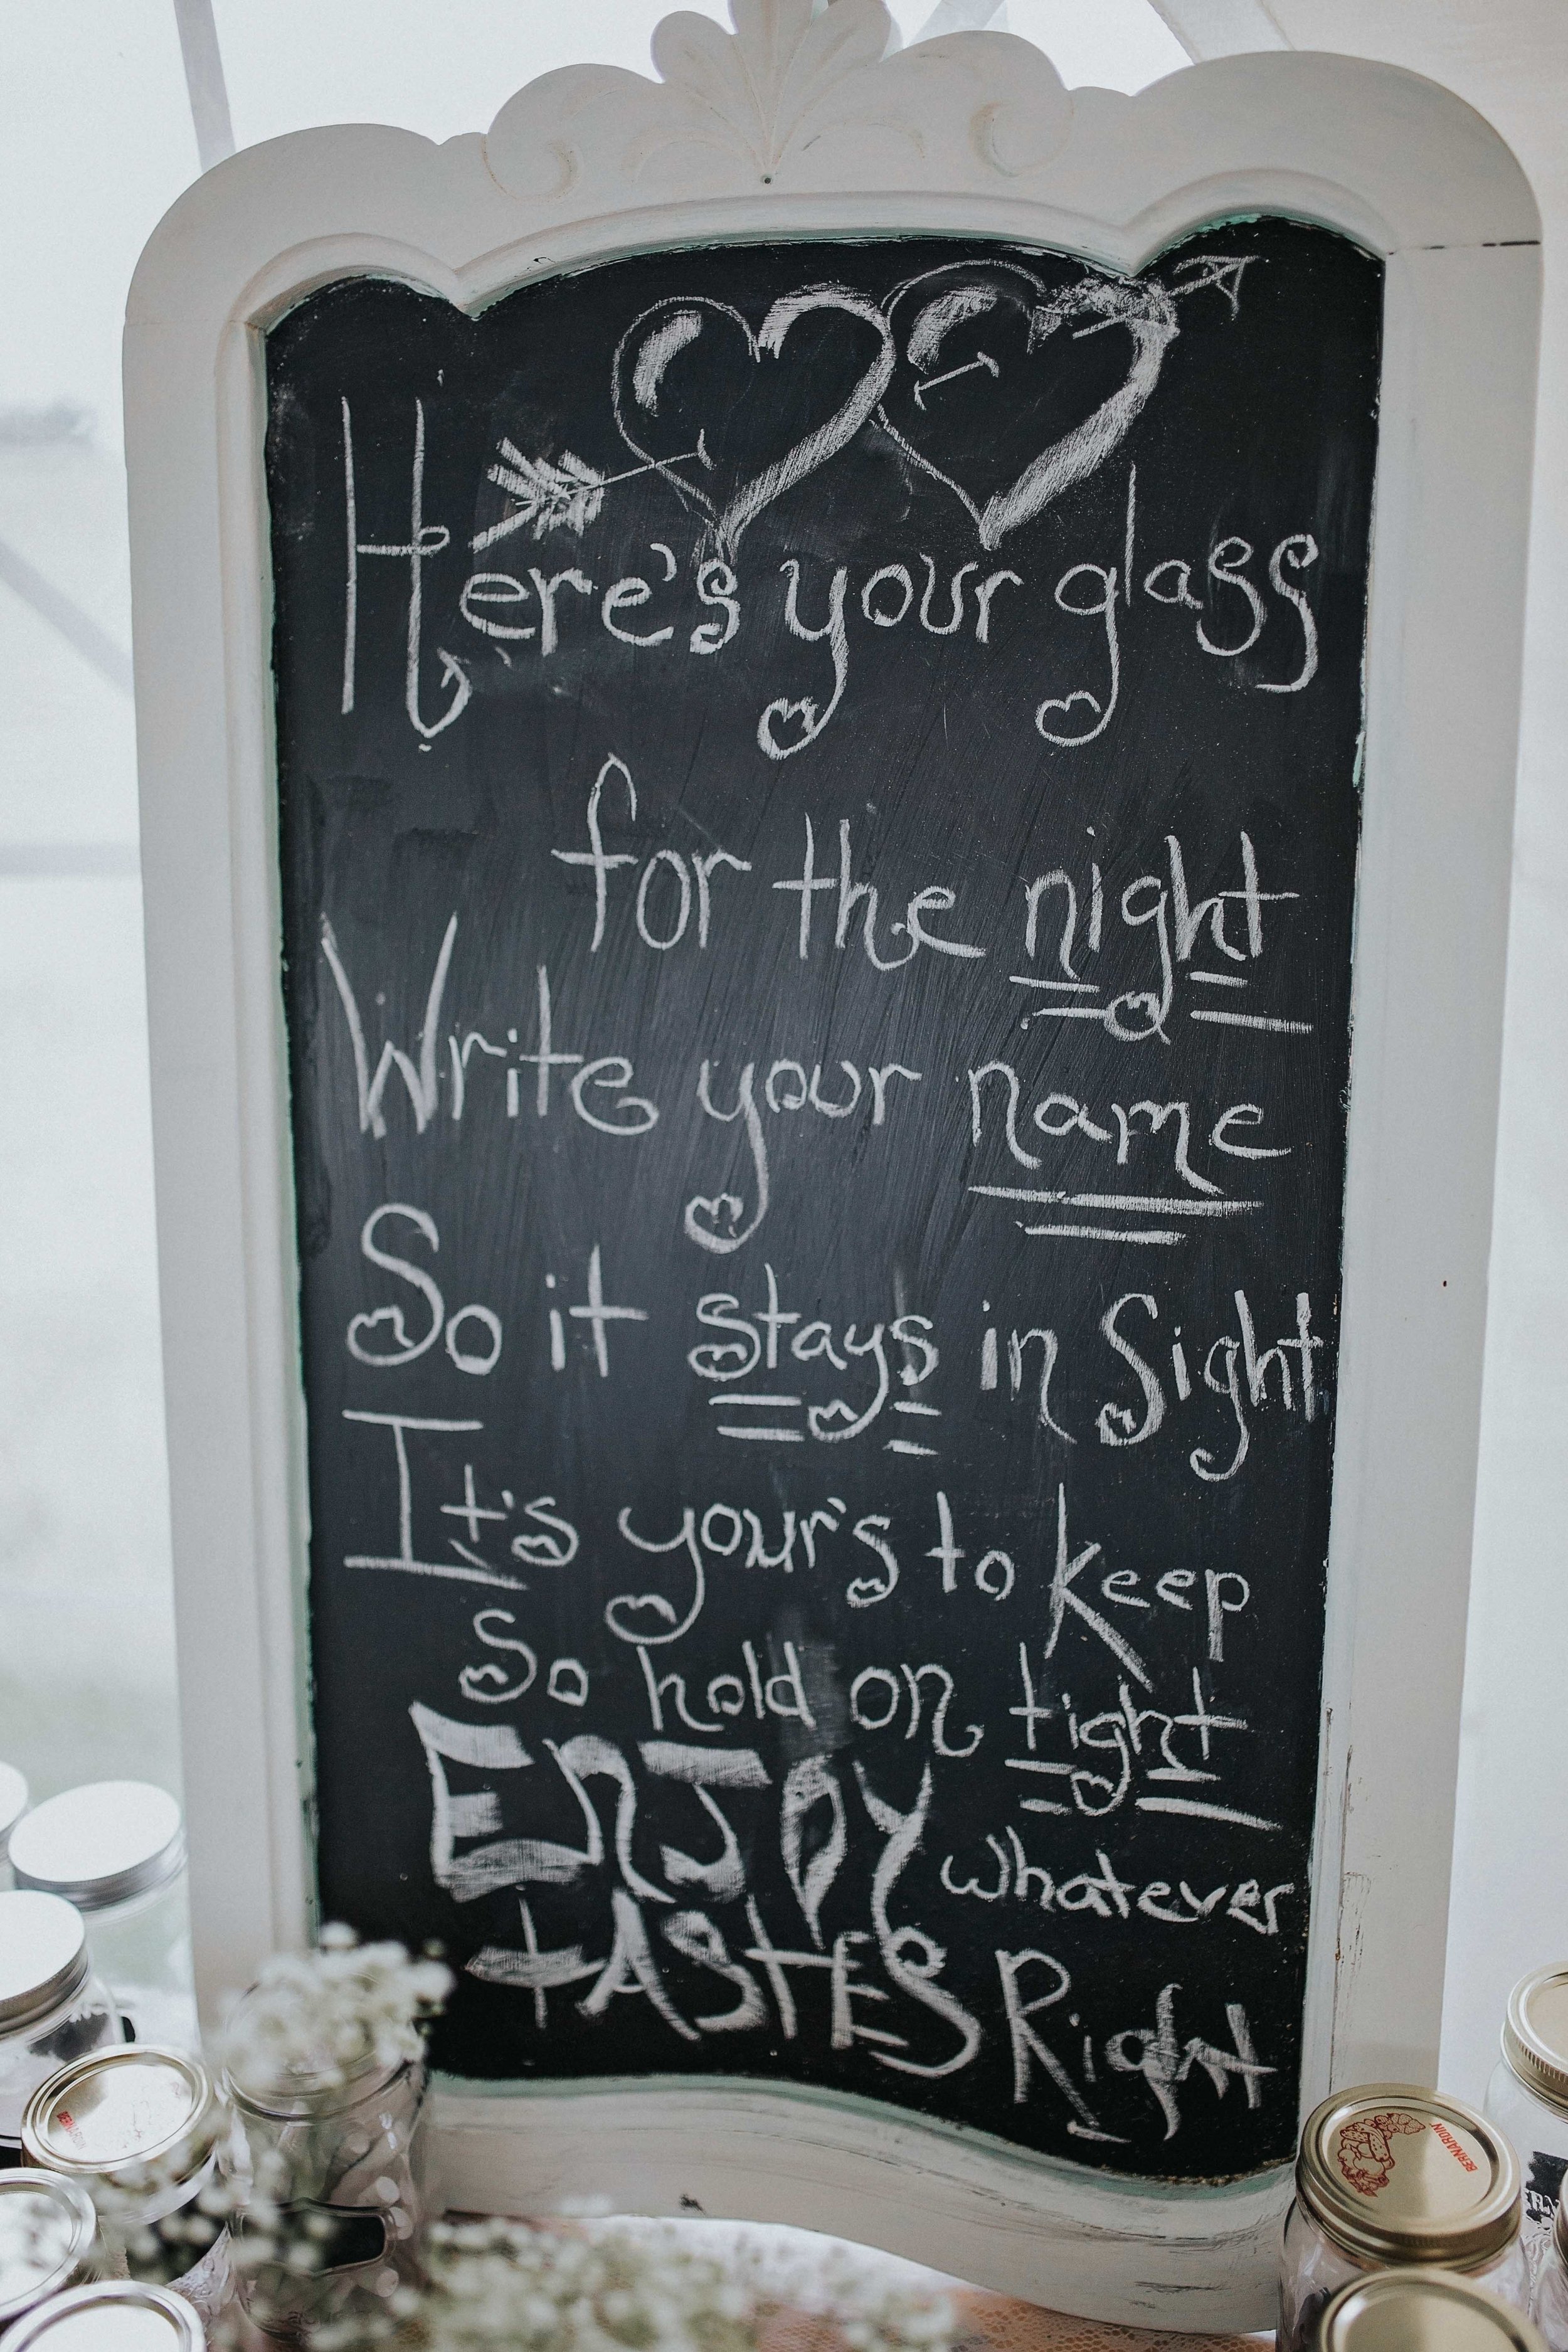 Here's your glass
for the night
Write your name
So it stays in Sight
It's your's to keep
So hold on tight
ENJOY whatever
tASTES Right
BERNARDIN